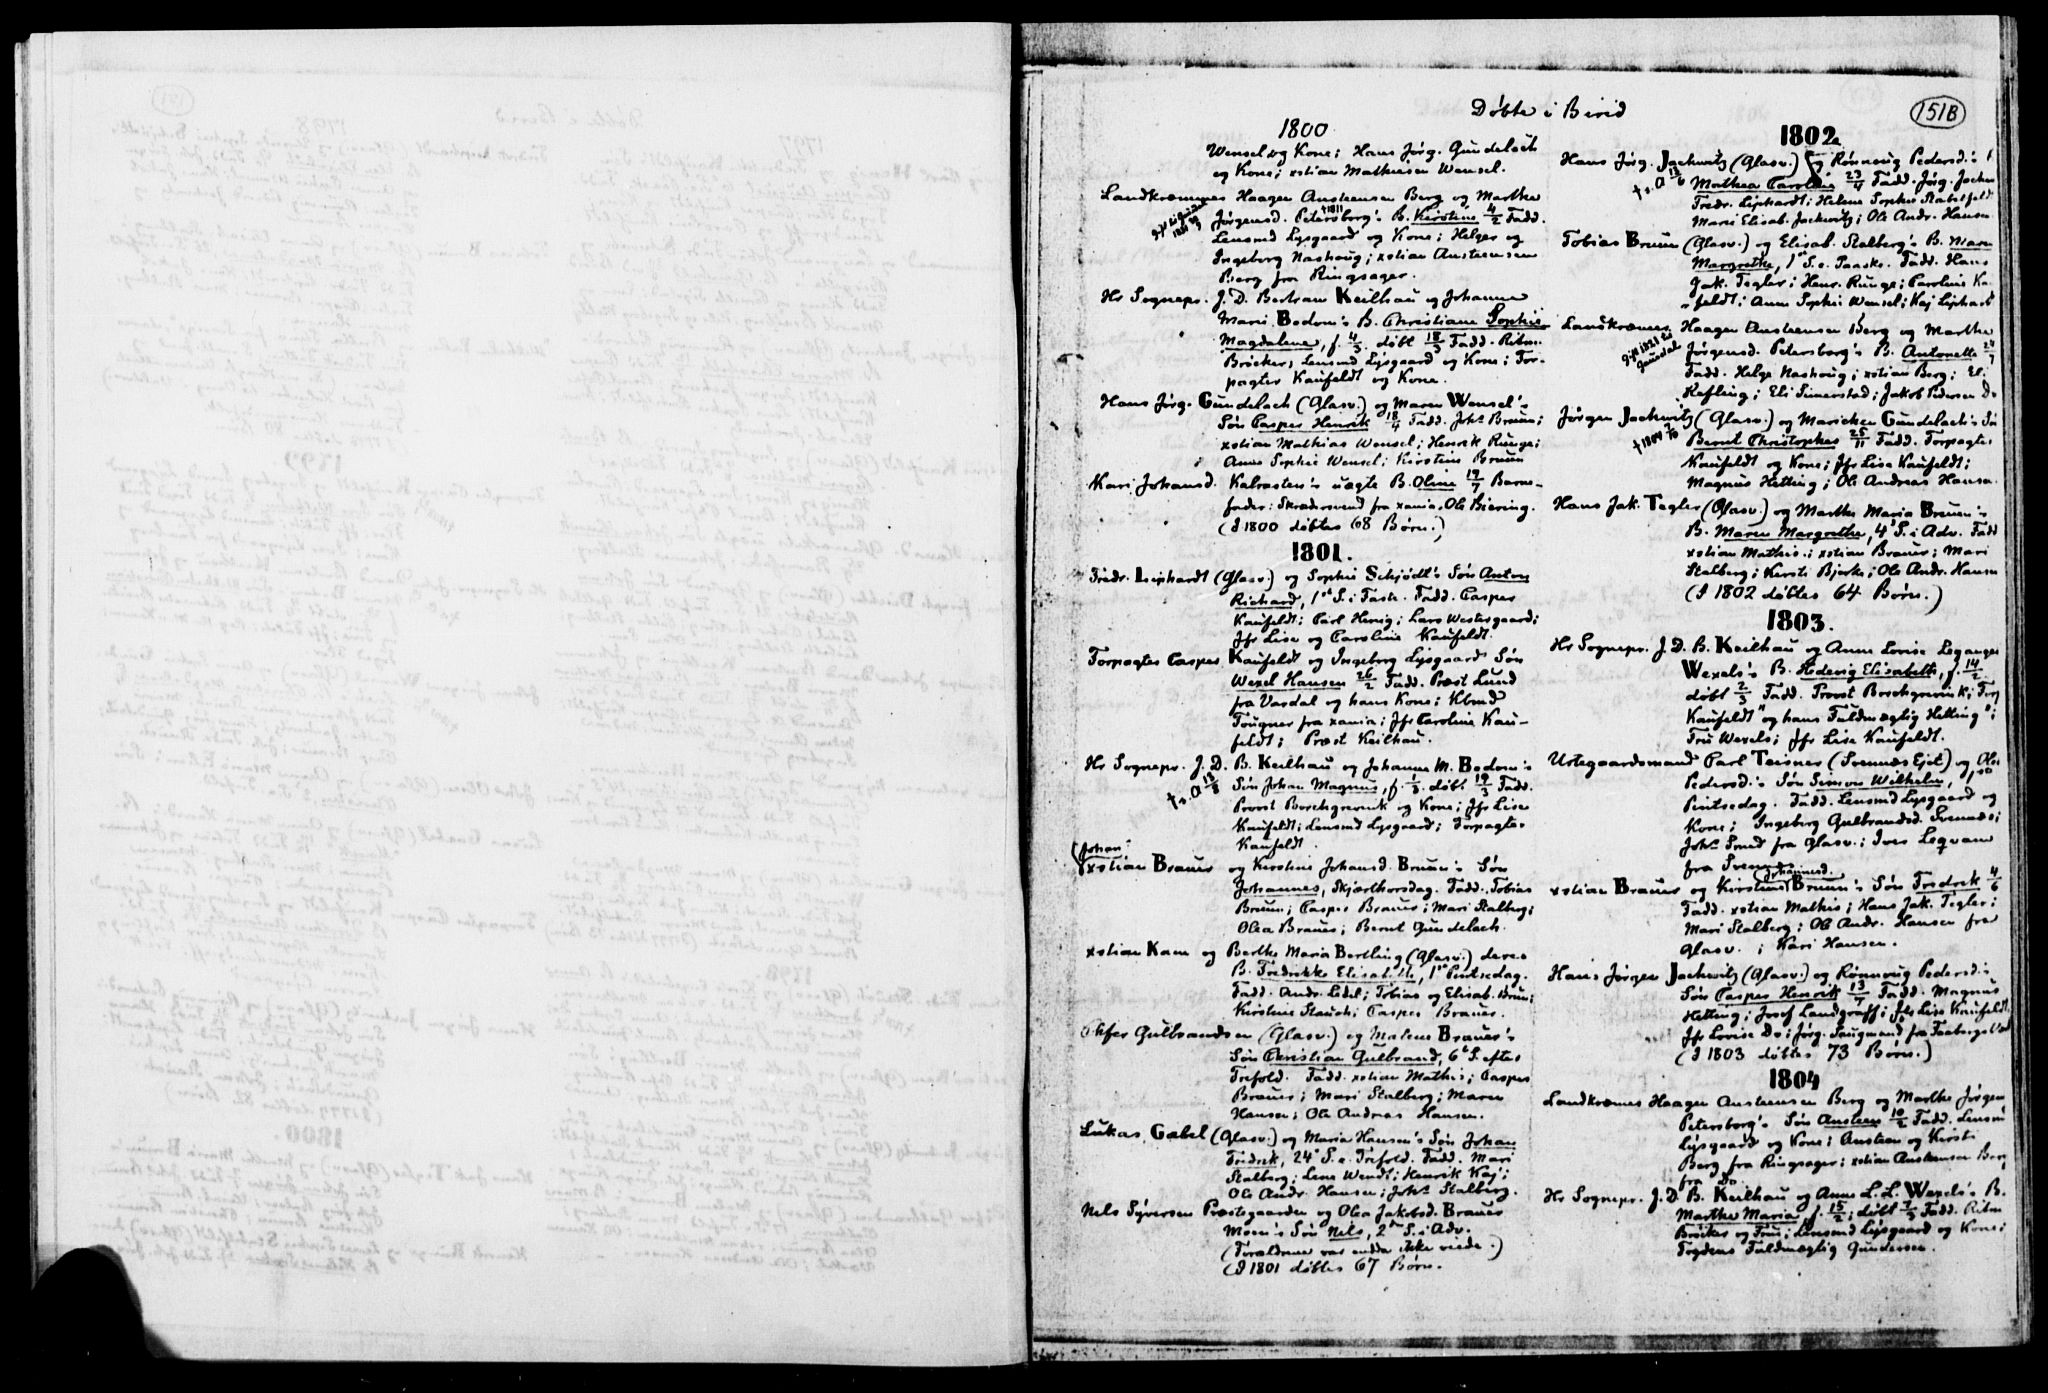 Døbte i Birid
151B
1800
Wensel og Kone; Hans Jørg. Gundelach
og Kone; xstian Mathiesen Wensel.
Landkræmmer Haagen Austeensen Berg og Marthe
Jørgensd. Petersborg's B. Kirstine 4/2 Fadd.
†1811
Lensmd Lysgaard og Kone; Helger og
Ingeborg Nashoug; xstian Austeensen
Berg fra Ringsager.
Hr Sognepr. J. D. Bertram Keilhau og Johanne
Marie Bodom's B. Christiane Sophie
Magdalene, f. 4/3 døbt 18/3 Fadd. Ritm.
Brøcker, Lensmd Lysgaard og Kone; For-
pagter Kaufeldt og Kone.
Hans Jørg. Gundelach (Glasv.) og Maren Wensel's
Søn Casper Henrik 18/4 Fadd. Johs Bruun;
xstian Mathias Wensel; Henrik Runge;
Anne Sophie Wensel; Kirstine Bruun
Kari Johansd. Kalrasten's uægte B. Oline 19/7 Barne-
fader: Skrædersvend fra xania. Ole Biering.
(I 1800 døbtes 68 Børn.)
1801.
Fredr. Liphardt (Glasv.) og Sophie Schjødt's Søn Anton
Richard, 1st S. i Faste. Fadd. Casper
Kaufeldt; Carl Henig; Lars Westegaard;
Jfr Lise og Caroline Kaufeldt.
Forpagter Casper Kaufeldt og Ingeborg Lysgaards Søn
Wexel Hansen 26/2 Fadd. Præst Lund
fra Vardal og hans Kone; Kbmd
Tougner fra xania; Jfr Caroline Kau-
feldt; Præst Keilhau.
Hr Sognepr. J. D. B. Keilhau og Johanne M. Bodom's
† s. A 13/8
Søn Johan Magnus, f. 1/3. døbt 19/3 Fadd.
Provst Borchgrevink og Kone; Jfr Lise
Kaufeldt; Lensmd Lysgaard; Forpagter
Kaufeldt.
(Johan
xstian Brauer og Kirstine Johansd. Bruun's Søn
Johannes, Skjærthorsdag. Fadd. Tobias
Bruun; Casper Brauer; Mari Stalberg;
Olea Brauer; Bernt Gundelach.
xstian Kam og Berthe Maria Bertling (Glasv.) deres
B. Fredrikke Elisabeth, 1st Pintsedag.
Fadd. Andr. Ledel; Tobias og Elisab. Brun;
Kirstine Stauch; Casper Brauer.
Olfer Gulbrandsen (Glasv.) og Malene Brauer's
Søn Christian Gulbrand, 6t S. efter
Trefold. Fadd. xstian Mathis; Casper
Brauer; Mari Stalberg; Maren
Hansen; Ole Andreas Hansen.
Lukas Gabel (Glasv.) og Maria Hansen's Søn Johan
Fredrik, 24 S. e. Trefold. Fadd. Mari
Stalberg; Lene Wendt; Henrik Kaj;
Ole Andr. Hansen; Johs Stalberg.
Nels Syversen Præstegaarden og Olea Jakobsd. Brauer
Moen's Søn Nels, 2den S. i Adv.
(Forældrene var endda ikke viede.)
(I 1801 døbtes 67 Børn.
1802.
Hans Jørg. Jachwitz (Glasv.) og Rønnoug Pedersd.'s
† s. A 13/6
Mathea Caroline 23/4 Fadd. Jørg. Jachw
Fredr. Liphardt; Helene Sophie Stabelfeldt
Marie Elisab. Jachwitz; Ole Andr. Hansen
Tobias Bruun (Glasv.) og Elisab. Stalberg's B. Maren
Margrethe, 1st S. e. Paaske. Fadd. Hans
Jak. Tegler; Henr. Runge; Caroline Ka-
feldt; Anne Sophie Wensel; Kaj Liphardt
Landkræmer Haagen Austeensen Berg og Marthe
Jørgensd. Petersborg's B. Antonette 24/7
Gift 1821 til
Gausdal
Fadd. Helge Nashoug; xstian Berg; Eli
Kefling; Eli Simerstad; Jakob Pedersen Do
Jørgen Jachwitz (Glasv.) og Maricken Gundelach's Sø
† 1804 7/10
Bernt Christopher 25/11 Fadd. Forpagter
Kaufeldt og Kone; Jfr Lise Kaufeldt;
Magnus Hetting; Ole Andreas Hansen.
Hans Jak. Tegler (Glasv.) og Marthe Maria Bruun's
B. Maren Margrethe, 4 S. i Adv. Fadd
xstian Mathis; xstian Brauer; Mari
Stalberg; Kirsti Bjerke; Ole Andr. Hansen
(I 1802 døbtes 64 Børn.)
1803.
Hr Sognepr. J. D. B. Keilhau og Anne Lovise Leganger
Wexels's B. Hedevig Elisabeth, f. 14/2
døbt 2/3 Fadd. Provst Borchgrevink; Forp
Kaufeldt og hans Fuldmægtig Hetting;
Fru Wexels; Jfr Lise Kaufeldt.
Urtegaardsmand Carl Teisner (Svennæs Ejet) og Ole
Pedersd.'s Søn Simon Wilhelm,
Pintsedag. Fadd. Lensmd Lysgaard og
Kone; Ingeborg Gulbrandsd. Svennæs;
Johs Smed fra Glasv.; Iver Leqvam
fra Svennæs
xstian Brauer og Kirstine Johannesd. Bruun's Søn Fredrik 4/6
Fadd. xstian Mathis; Hans Jak. Tegler;
Mari Stalberg; Ole Andr. Hansen fra
Glasv.; Kari Hansen.
Hans Jørgen Jachwitz (Glasv.) og Rønnoug Pedersd.'s
Søn Casper Henrik 13/7 Fadd. Magnus
Hetting; Josef Landgraff; Jfr Lise Kaufeldt
Jfr Lovise Do; Jørg. Saugmand fra Faaberg
(I 1803 døbtes 73 Børn.)
1804
Landkræmer Haagen Austeensen Berg og Marthe Jørgen
Petersborg's Søn Austeen 10/2 Fadd. Lensm
Lysgaard og Kone; Austeen og Kirsti
Berg fra Ringsager; xstian Austensen Berg
fra Do
Hr Sognepr. J. D. B. Keilhau og Anne L. L. Wexels's B.
Marthe Maria f. 15/2; døbt 7/3 Fadd. Ritm
Brøcker og Frue; Lensmd Lysgaard og Kone;
Frydens Fuldmægtig Gundersen.